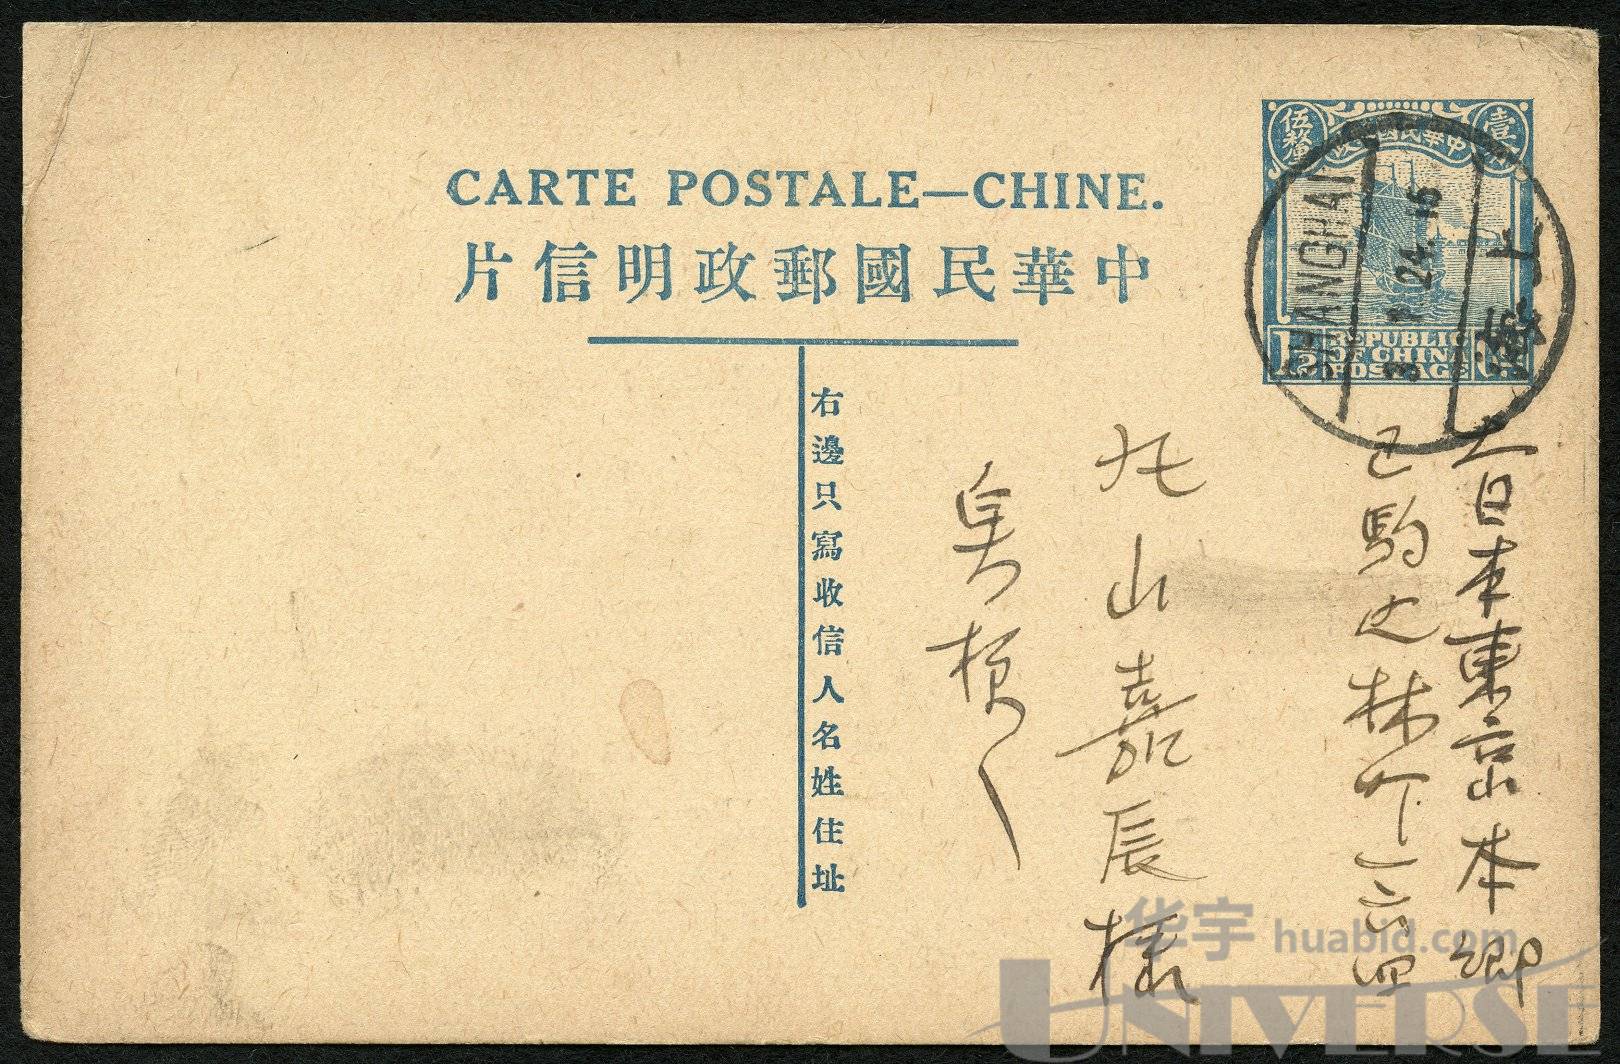 CARTE POSTALE—CHINE.
中華民國郵政明信片
伍釐
壹
中華民國郵政
1½
REPUBLIC
OF CHINA
POSTAGE
SHANGHAI
24. 16
上海
右邊只寫收信人名姓住址
大日本東京本郷
駒込林町一六四
丸山嘉辰様
奥様
华宇 huabid.com
UNIVERSE